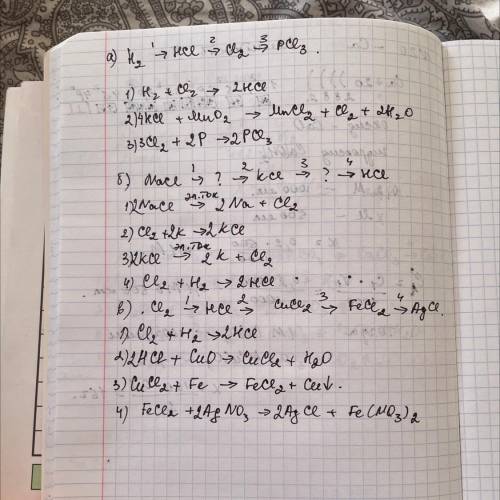 а) H₂ →¹ HCl →² Cl₂ →³ PCl₃.
1) H₂ + Cl₂ → 2HCl
2) 4HCl + MnO₂ → MnCl₂ + Cl₂ + 2H₂O
3) 3Cl₂ + 2P → 2PCl₃
б) NaCl →¹ ? →² KCl →³ ? →⁴ HCl
эл.ток
1) 2NaCl → 2Na + Cl₂
2) Cl₂ + 2K → 2KCl
эл.ток
3) 2KCl → 2K + Cl₂
4) Cl₂ + H₂ → 2HCl
в) Cl₂ →¹ HCl →² CuCl₂ →³ FeCl₂ →⁴ AgCl.
1) Cl₂ + H₂ → 2HCl
2) 2HCl + CuO → CuCl₂ + H₂O
3) CuCl₂ + Fe → FeCl₂ + Cu↓.
4) FeCl₂ + 2AgNO₃ → 2AgCl + Fe(NO₃)₂